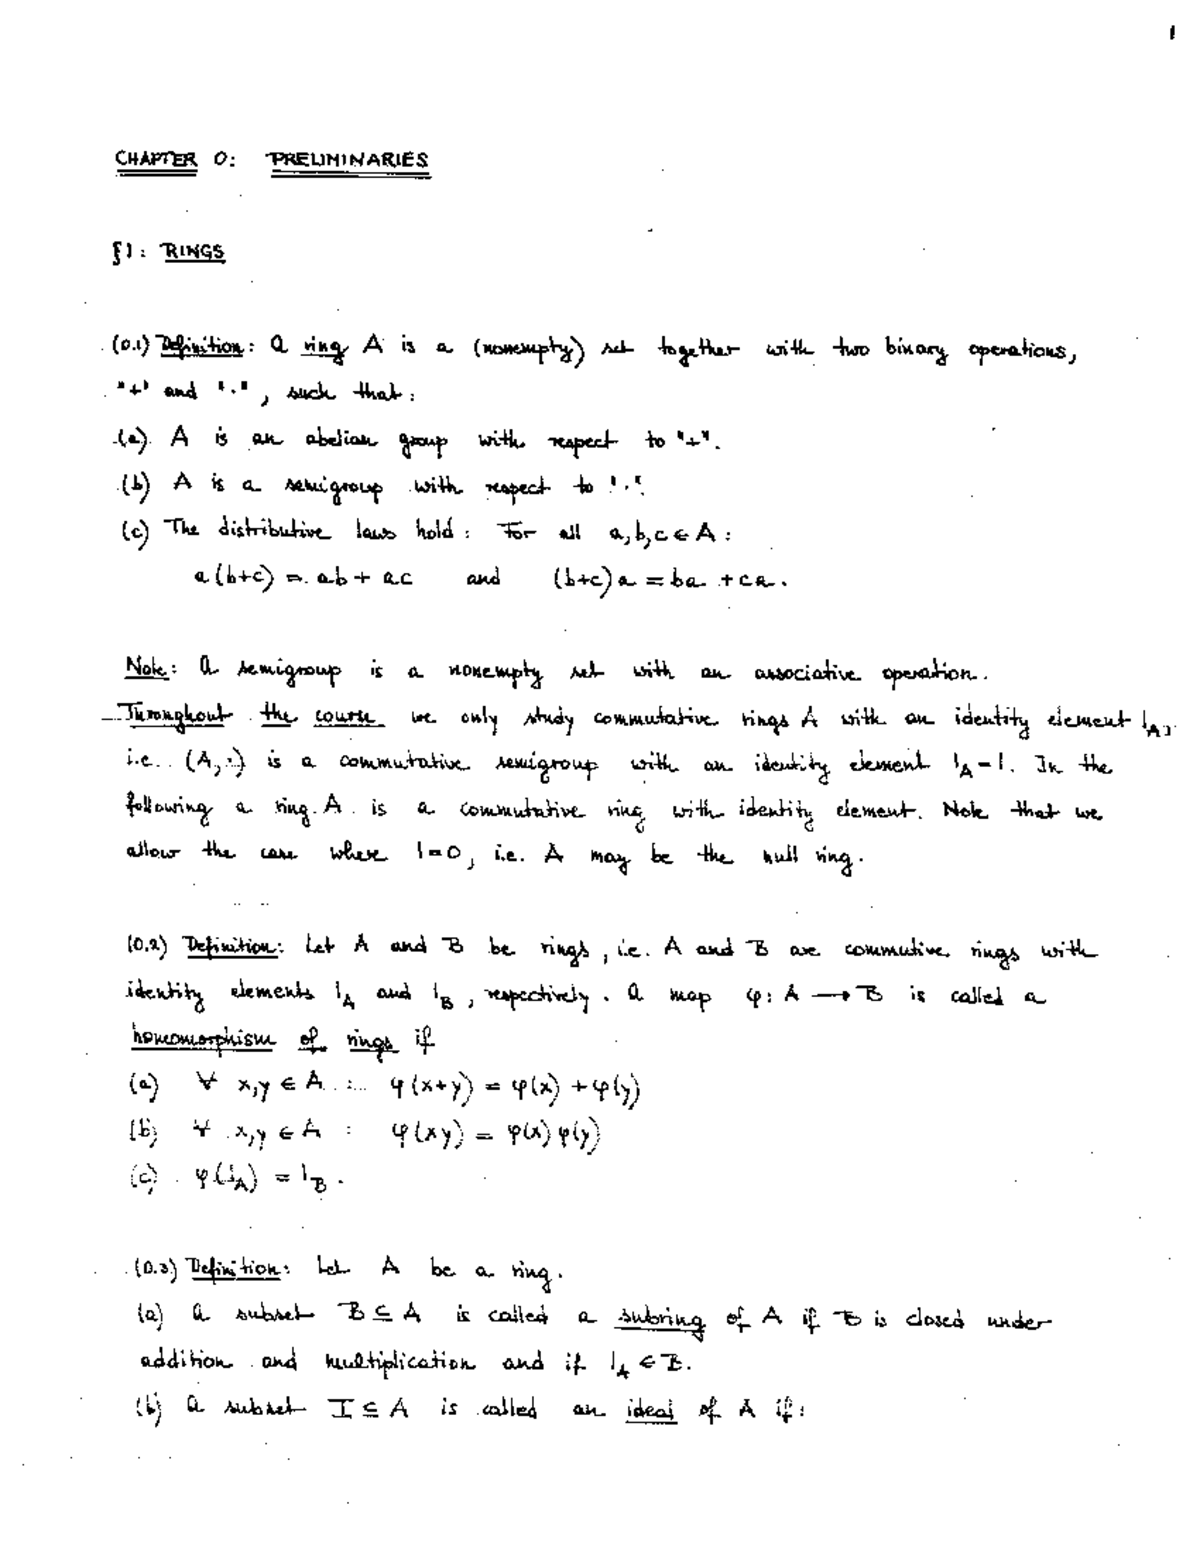 1
CHAPTER 0: PRELIMINARIES
§1: RINGS
(0.1) Definition: A ring A is a (nonempty) set together with two binary operations,
"+" and "·", such that:
(a) A is an abelian group with respect to "+".
(b) A is a semigroup with respect to "·".
(c) The distributive laws hold: For all a,b,c ∈ A:
a(b+c) = ab + ac and (b+c)a = ba + ca.
Note: A semigroup is a nonempty set with an associative operation.
Throughout the course we only study commutative rings A with an identity element 1_A,
i.e. (A,·) is a commutative semigroup with an identity element 1_A = 1. In the
following a ring A is a commutative ring with identity element. Note that we
allow the case where 1=0, i.e. A may be the null ring.
(0.2) Definition: Let A and B be rings, i.e. A and B are commutive rings with
identity elements 1_A and 1_B, respectively. A map φ: A → B is called a
homomorphism of rings if
(a) ∀ x,y ∈ A : φ(x+y) = φ(x) + φ(y)
(b) ∀ x,y ∈ A : φ(xy) = φ(x)φ(y)
(c) φ(1_A) = 1_B.
(0.3) Definition: Let A be a ring.
(a) A subset B ⊆ A is called a subring of A if B is closed under
addition and multiplication and if 1_A ∈ B.
(b) A subset I ⊆ A is called an ideal of A if: